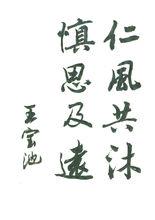 仁風共沐
慎思及遠
王宗池